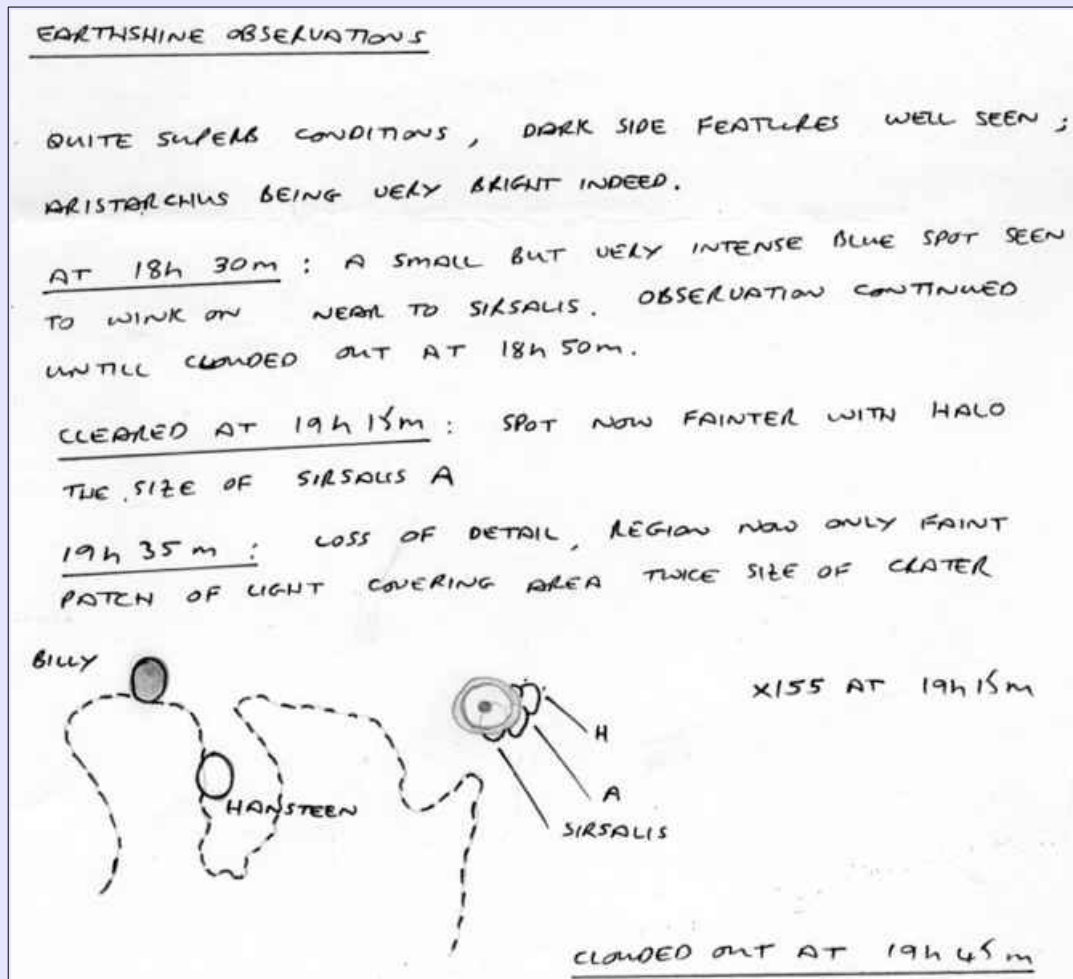 EARTHSHINE OBSERVATIONS
QUITE SUPERB CONDITIONS, DARK SIDE FEATURES WELL SEEN;
ARISTARCHUS BEING VERY BRIGHT INDEED.
AT 18h 30m: A SMALL BUT VERY INTENSE BLUE SPOT SEEN
TO WINK ON NEAR TO SIRSALIS. OBSERVATION CONTINUED
UNTILL CLOUDED OUT AT 18h 50m.
CLEARED AT 19h 15m: SPOT NOW FAINTER WITH HALO
THE SIZE OF SIRSALIS A
19h 35m: LOSS OF DETAIL, REGION NOW ONLY FAINT
PATCH OF LIGHT COVERING AREA TWICE SIZE OF CRATER
BILLY
X155 AT 19h 15m
H
A
HANSTEEN
SIRSALIS
CLOUDED OUT AT 19h 45m